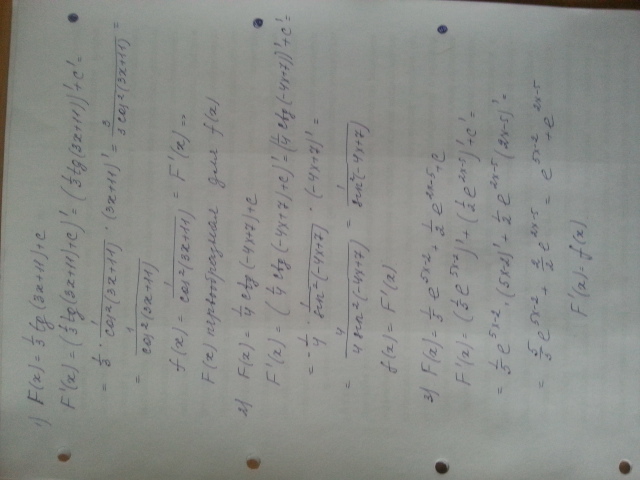 1) F(x) = 1/3 tg(3x+11)+C
F'(x) = (1/3 tg(3x+11)+C)' = (1/3 tg(3x+11))' + C' =
= 1/3 · 1/cos²(3x+11) · (3x+11)' = 3/3cos²(3x+11) =
= 1/cos²(3x+11)
f(x) = 1/cos²(3x+11) = F'(x) ⇒
F(x) первообразная для f(x)
2) F(x) = 1/4 ctg(-4x+7)+C
F'(x) = (1/4 ctg(-4x+7)+C)' = (1/4 ctg(-4x+7))' + C' =
= -1/4 · 1/sin²(-4x+7) · (-4x+7)' =
= 4/4sin²(-4x+7) = 1/sin²(-4x+7)
f(x) = F'(x)
3) F(x) = 1/5 e^(5x-2) + 1/2 e^(2x-5) + C
F'(x) = (1/5 e^(5x-2))' + (1/2 e^(2x-5))' + C' =
= 1/5 e^(5x-2) · (5x-2)' + 1/2 e^(2x-5) (2x-5)' =
= 5/5 e^(5x-2) + 2/2 e^(2x-5) = e^(5x-2) + e^(2x-5)
F'(x) = f(x)